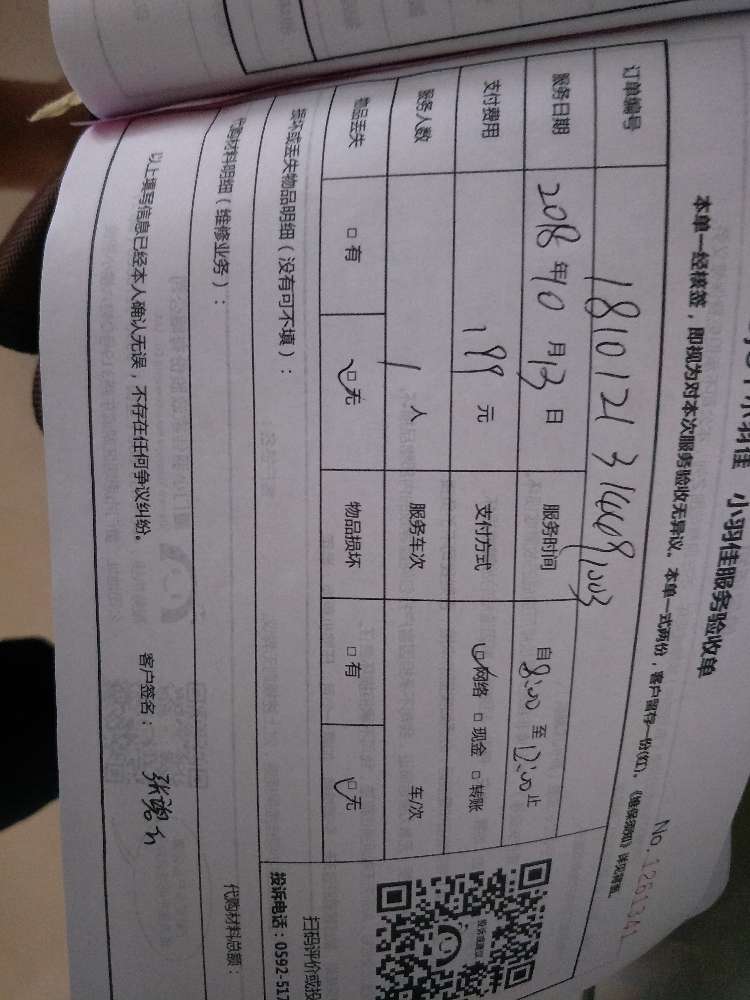 小羽佳服务验收单
No.1261341
本单一经核签，即视为对本次服务验收无异议。本单一式两份，客户留存一份(红)。《维保须知》详见背面。
订单编号 1810121314
服务日期 2018 年 10 月 13 日 服务时间 自 8:00 至 12:00 止
支付费用 199 元 支付方式 □网络 □现金 □转账
服务人数 1 人 服务车次 车/次
物品丢失 □有 □无 物品损坏 □有 □无
损坏或丢失物品明细（没有可不填）：
扫码评价或投
投诉电话：0592-517
代购材料明细（维修业务）：
代购材料总额：
以上填写信息已经本人确认无误，不存在任何争议纠纷。 客户签名：